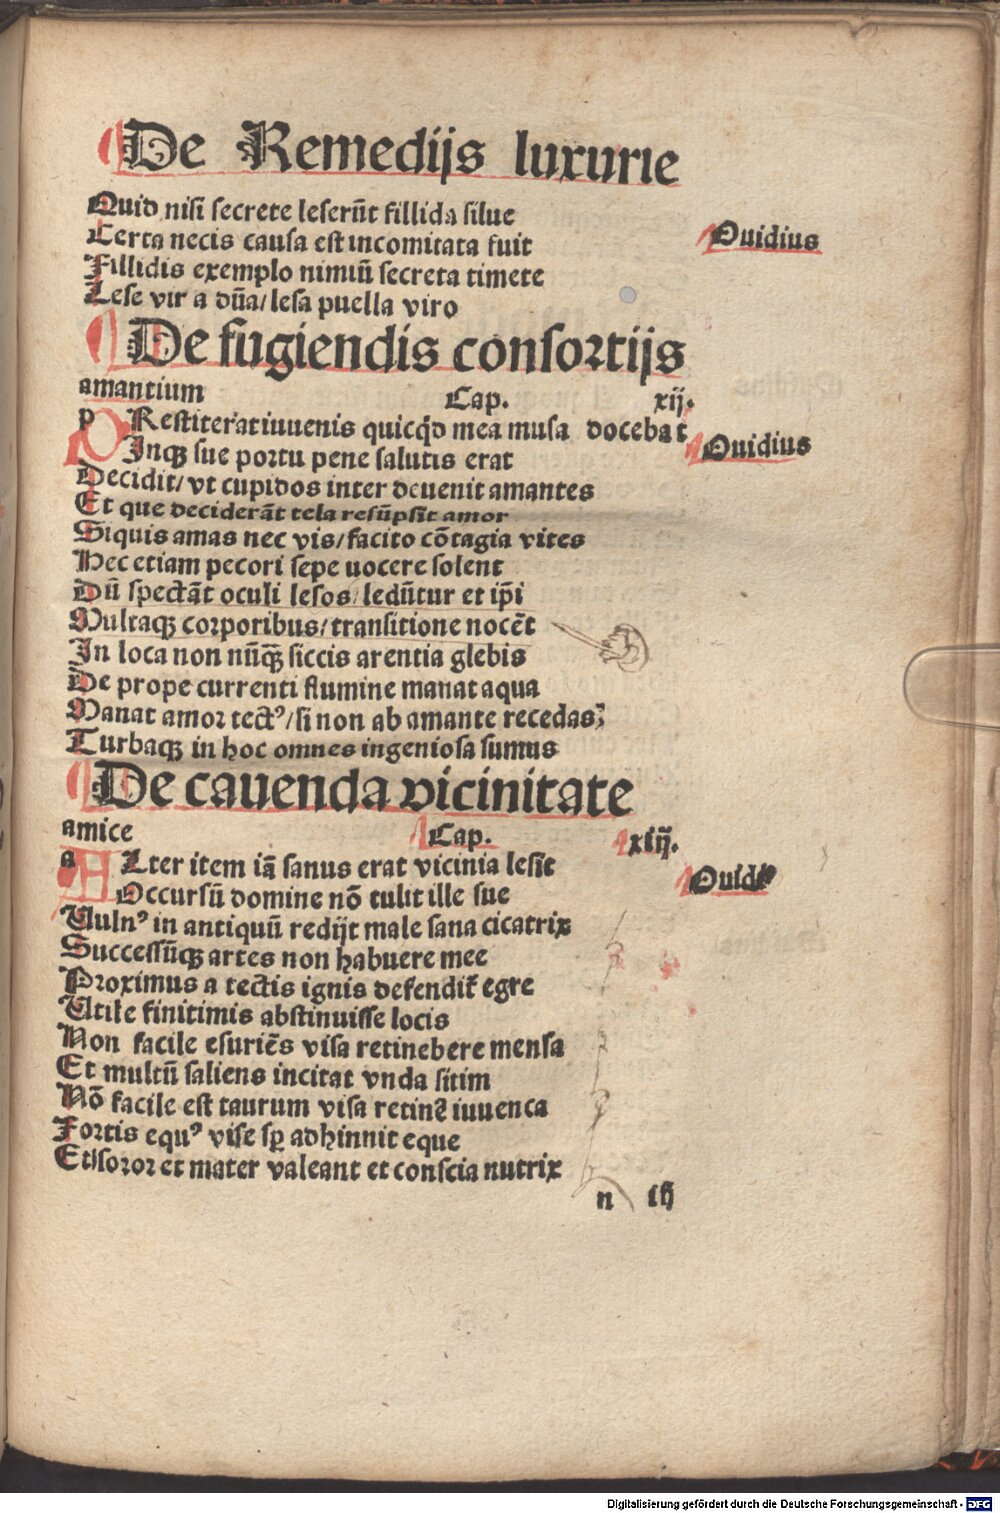 De Remedijs luxurie
Quid nisi secrete leserũt fillida silue
Certa necis causa est incomitata fuit
Fillidis exemplo nimiũ secreta timete
Lese vir a dũa/ lesa puella viro
Ouidius
De fugiendis consortijs
amantium Cap. xij.
p REstiterat iuuenis quicq̃d mea musa docebat
Inq̃ sue portu pene salutis erat
Ouidius
Decidit/ vt cupidos inter deuenit amantes
Et que deciderãt tela resũpsit amor
Siquis amas nec vis/ facito cõtagia vites
Hec etiam pecori sepe uocere solent
Dũ spectãt oculi lesos/ ledũtur et ip̃i
Multaqꝫ corporibus/ transitione nocẽt
In loca non nũqꝫ̃ siccis arentia glebis
De prope currenti flumine manat aqua
Manat amor tectꝰ/ si non ab amante recedas
Turbaqꝫ in hoc omnes ingeniosa sumus
De cauenda vicinitate
amice Cap. xiij.
a Lter item iã sanus erat vicinia lesit
Occursũ domine nõ tulit ille sue
Ouidiꝰ
Vulnꝰ in antiquũ redijt male sana cicatrix
Successũqꝫ artes non habuere mee
Proximus a tectis ignis defendit̃ egre
Utile finitimis abstinuisse locis
Non facile esuriẽs visa retinebere mensa
Et multũ saliens incitat vnda sitim
Nõ facile est taurum visa retinẽ iuuenca
Fortis equꝰ vise sp̱ adhinnit eque
Et soror et mater valeant et conscia nutrix
n